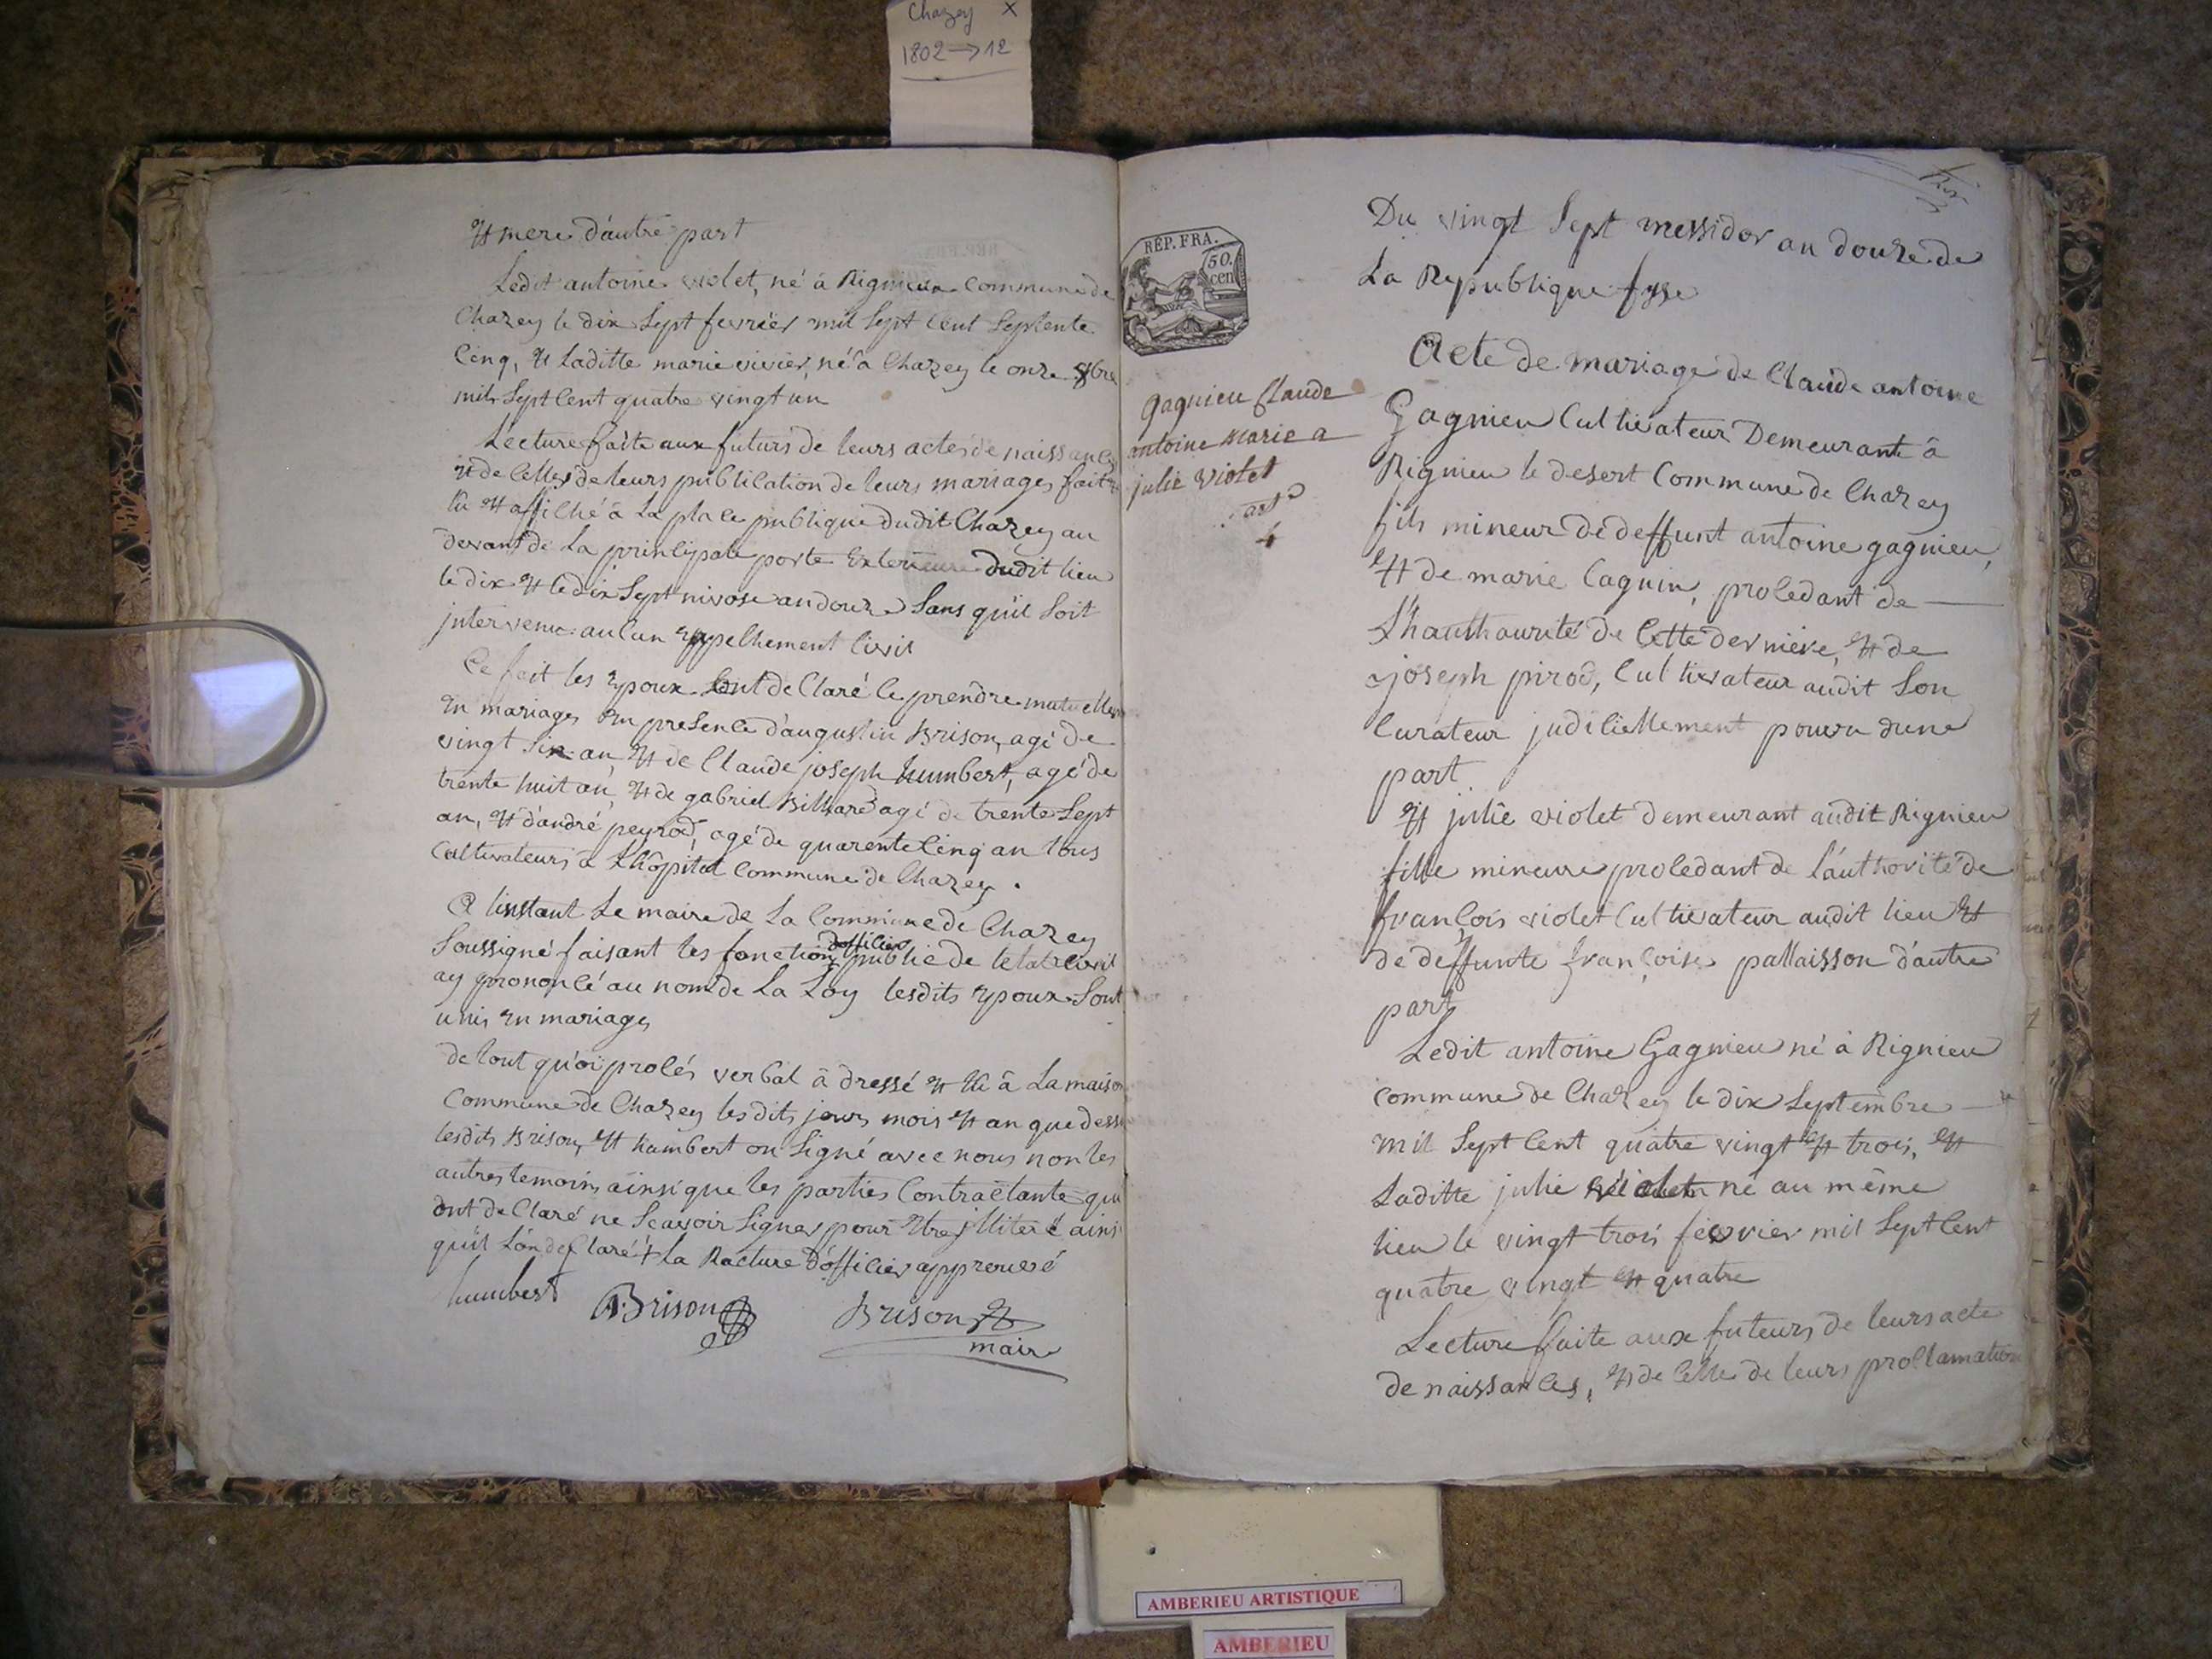 Chazey X
1802 → 12
Et mere d'autre part
Ledit antoine violet, né à Rignieux Commune de
Chazey le dix Sept fevrier mil Sept Cent Septente
Cinq, Et laditte marie vivier, né à Chazey le onze 8bre
mil Sept Cent quatre vingt un
Lecture faite aux futurs de leurs actes de naissance
Et de Celles de leurs publication de leurs mariages fait
lu Et affiché à la place publique dudit Chazey au
devant de la principale porte Exterieure dudit lieu
le dix Et le dix Sept nivose an douze Sans qu'il Soit
intervenu aucun Empechement Civil
Ce fait les Epoux ont declaré ce prendre mutuellem
En mariages En presence d'augustin Brison, agé de
vingt Six an, Et de Claude joseph humbert, agé de
trente huit an, Et de gabriel Billiard agé de trente Sept
an, Et d'andré peyrod, agé de quarente Cinq an tous
Cultivateurs à Lhôpital Commune de Chazey.
A linstant Le maire de La Commune de Chazey
Soussigné faisant les fonction d'officier public de letat Civil
ay prononcé au nom de La Loy lesdits Epoux Sont
unis En mariages
de tout quoi procés verbal à dressé Et lû à La maison
Commune de Chazey les dits jours mois Et an que dess
lesdits Brison, Et humbert on Signé avec nous non les
autres temoins ainsi que les parties Contractante qui
ont declaré ne Scavoir Signer pour Etre illiteré ains
quil Lon declaré + la Racture d'officier approuvé
humbert ABrison Brison
maire
RÉP. FRA.
50.
cen
gagnieu Claude
antoine Marie a
julie violet
4
Du vingt Sept messidor an douze de
La Republique fçse
Acte de mariage de Claude antoine
Gagnieu Cultivateur Demeurant à
Rignieu le desert Commune de Chazey
fils mineur de deffunt antoine gagnieu,
Et de marie Caguin, procedant de
L'hauthaurité de Cette derniere, Et de
joseph pirod, Cultivateur audit Son
Curateur judiciellement pouvu dune
part
Et julie violet demeurant audit Rignieu
fille mineure procedant de l'authorité de
françois violet Cultivateur audit lieu Et
de deffunte françoise pallaisson d'autre
part
Ledit antoine Gagnieu né à Rignieu
Commune de Chazey le dix Septembre
mil Sept Cent quatre vingt Et trois, Et
Laditte julie violet né au même
lieu le vingt trois fevrier mil Sept Cent
quatre vingt Et quatre
Lecture faite aux futeurs de leurs acte
de naissances, Et de Celle de leurs proclamation
AMBERIEU ARTISTIQUE
AMBERIEU